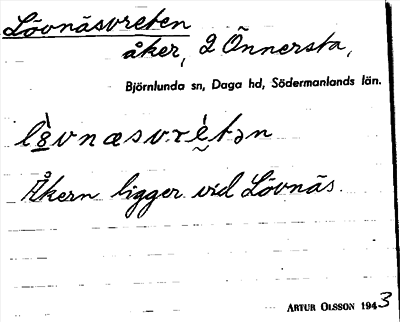 Lövnäsvreten
åker, 2 Önnersta,
Björnlunda sn, Daga hd, Södermanlands län.
Åkern ligger vid Lövnäs.
ARTUR OLSSON 1943